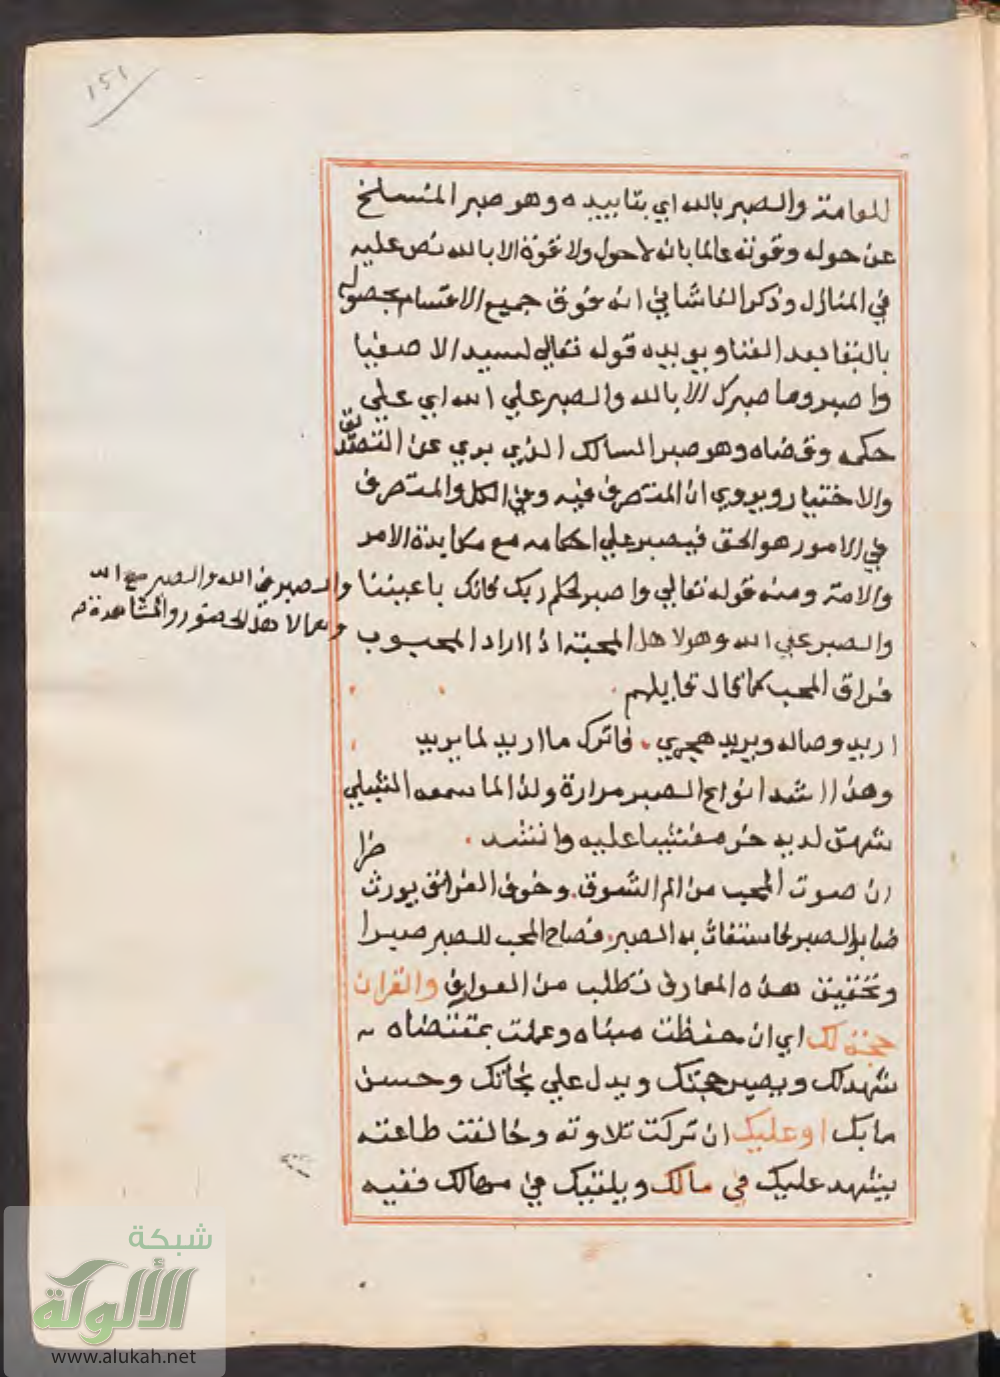 ١٥١
للعامة والصبر بالله اي بتاييده وهو صبر المنسلخ
عن حوله وقوته عالما بانه لا حول ولا قوة الا بالله نص عليه
في المنازل وذكر القاشاني انه فوق جميع الاقسام بحصوله
بالبقا بعد الفنا ويويده قوله تعالي لسيد الاصفيا
واصبر وما صبرك الا بالله والصبر علي الله اي علي
حكمه وقضاه وهو صبر السالك الذي بري عن التصدق
والاختيار ويروي ان المتصرف فيه وفي الكل والمتصرف
في الامور هو الحق فيصبر علي احكامه مع مكابدة الامر
والامة ومنه قوله تعالي واصبر لحكم ربك فانك باعيننا والصبر عن الله والصبر مع الله
والصبر عن الله وهو لاهل المحبة اذا اراد المحبوب وهما لاهل الحضور والمشاهدة
فراق المحب كما قال قايلهم
اريد وصاله ويريد هجري فاترك ما اريد لما يريد
وهذا اشد انواع الصبر مرارة ولذا لما سمعه الشبلي
شهق لديه خر مغشيا عليه وانشد
ان صوت المحب من الم الشوق وخوف الفراق يورث ضرا
صابر الصبر فاستغاث به الصبر فصاح المحب للصبر صبرا
وتحقيق هذه المعارف تطلب من العوارف والقران
حجة لك اي ان حفظت مبناه وعملت بمقتضاه
شهد لك ويصير حجتك ويدل علي نجاتك وحسن
مابك او عليك ان تركت تلاوته وخالفت طاعته
يشهد عليك في مالك ويلقيك في مهالك ففيه
شبكة
الألوكة
www.alukah.net